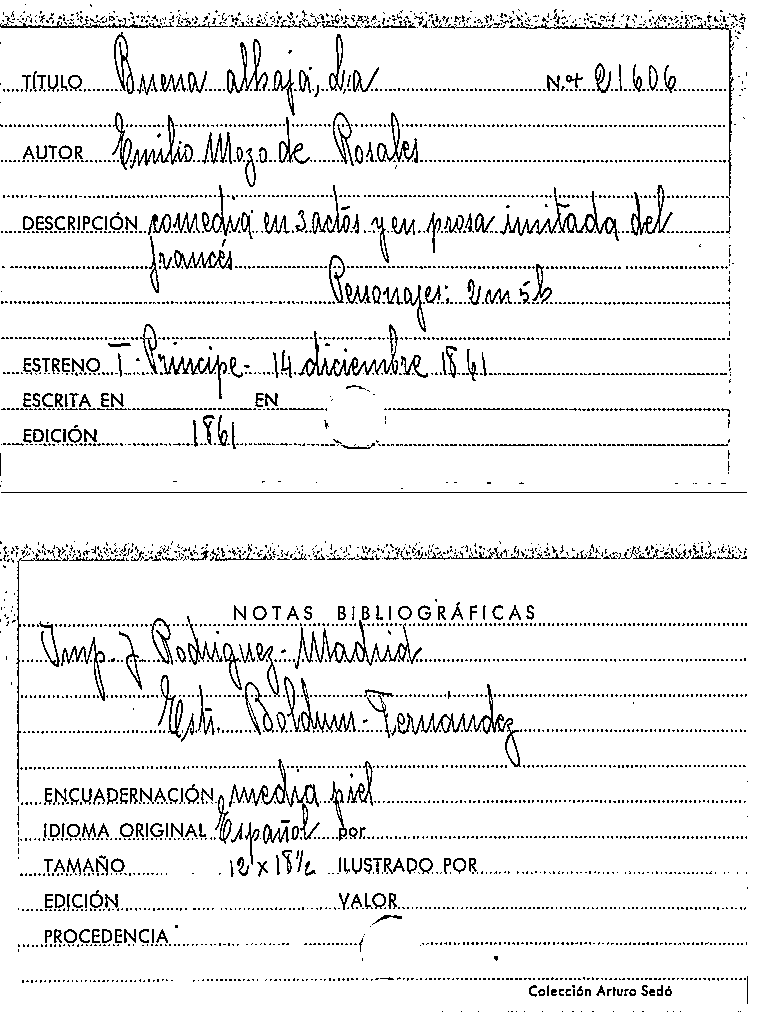 TÍTULO Buena alhaja, La N.º 21606
AUTOR Emilio Mozo de Rosales
DESCRIPCIÓN comedia en 3 actos y en prosa imitada del
francés
Personajes: 2m 5h
ESTRENO T. Principe - 14 diciembre 1861
ESCRITA EN EN
EDICIÓN 1861
NOTAS BIBLIOGRÁFICAS
Imp. J Rodriguez - Madrid
Estr. Boldum - Fernández
ENCUADERNACIÓN media piel
IDIOMA ORIGINAL Español por
TAMAÑO 12 x 18½ ILUSTRADO POR
EDICIÓN VALOR
PROCEDENCIA
Colección Arturo Sedó